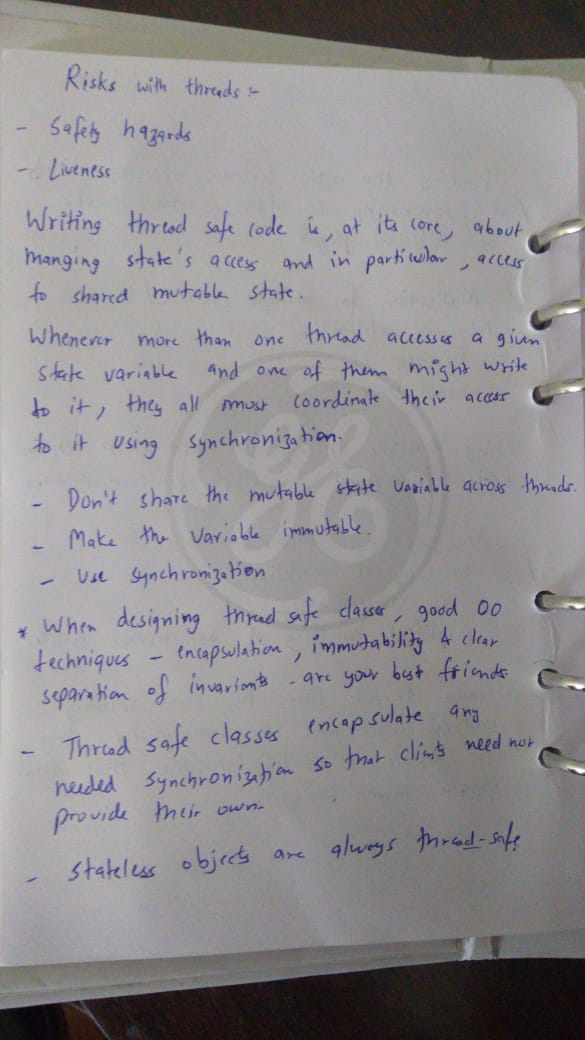 Risks with threads :-
- Safety hazards
- Liveness
Writing thread safe code is, at its core, about
manging state's access and in particular, access
to shared mutable state.
Whenever more than one thread accesses a given
state variable and one of them might write
to it, they all must coordinate their access
to it using synchronization.
- Don't share the mutable state variable across threads.
- Make the variable immutable.
- Use synchronization
* When designing thread safe classes, good OO
techniques - encapsulation, immutability & clear
separation of invariants - are your best friends.
- Thread safe classes encapsulate any
needed synchronization so that clients need not
provide their own.
- Stateless objects are always thread-safe